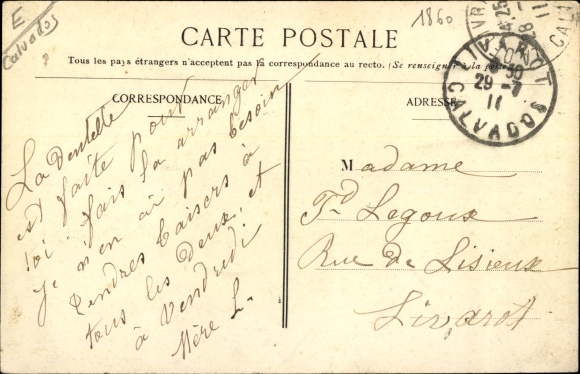 E
Calvados
1860
CARTE POSTALE
Tous les pays étrangers n'acceptent pas la correspondance au recto. (Se renseigner à la poste)
CORRESPONDANCE
ADRESSE
LIVAROT
30
29 -7
11
CALVADOS
La dentelle
est faite pour
toi fais la arranger
je n'en ai pas besoin
tendres baisers à
tous les deux, et
à Vendredi
Mère L.
Madame
Fd Legoux
Rue de Lisieux
Livarot